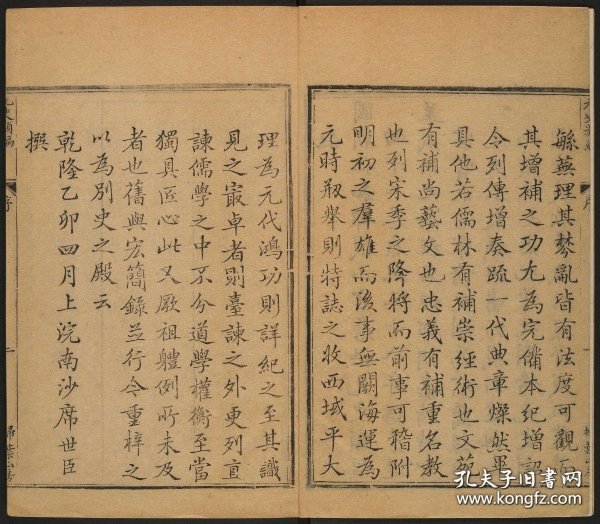 緐蕪理其棼亂皆有法度可觀
其增補之功尤為完備本紀增詔
令列傳增奏疏一代典章燦然畢
具他若儒林有補崇經術也文苑
有補尚藝文也忠義有補重名教
也列宋季之降將而前事可稽附
明初之羣雄而後事無闕海運為
元時刱舉則特誌之收西域平大
理為元代鴻功則詳紀之至其識
見之冣卓者則臺諫之外更列直
諫儒學之中不分道學權衡至當
獨具匠心此又厥祖軆例所未及
者也舊與宏簡錄並行今重梓之
以為別史之殿云
乾隆乙卯四月上浣南沙席世臣
撰
序
孔夫子旧书网
www.kongfz.com